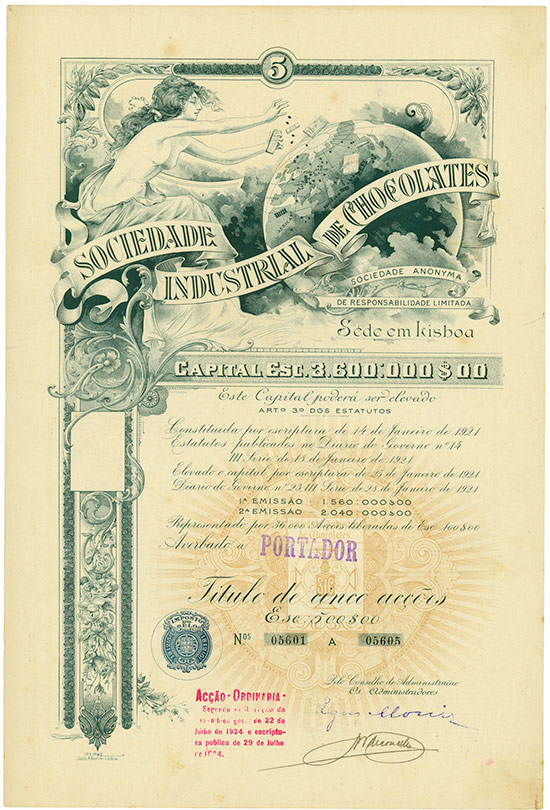 5
SOCIEDADE
INDUSTRIAL
DE CHOCOLATES
SOCIEDADE ANONYMA
DE RESPONSABILIDADE LIMITADA
Séde em Lisboa
CAPITAL ESC. 3.600:000$00
Este Capital poderá ser elevado
ARTº 3º DOS ESTATUTOS
Constituida por escriptura de 14 de Janeiro de 1921
Estatutos publicados no Diario do Governo nº 14
III Serie de 18 de Janeiro de 1921
Elevado o capital por escriptura de 25 de Janeiro de 1921
Diario do Governo nº 23 III Serie de 28 de Janeiro de 1921
1ª EMISSÃO 1.560:000$00
2ª EMISSÃO 2.040:000$00
Representado por 36.000 Acções liberadas de Esc. 100$00
Averbado a PORTADOR
Titulo de cinco acções
Esc. 500$00
IMPOSTO DO SELO
Nos 05601 A 05605
Pelo Conselho de Administração
Os Administradores
ACÇÃO - ORDINARIA -
Segundo da
de 22 de
Julho de 1924 e escriptu-
ra publica de 29 de Julho
de 1924.